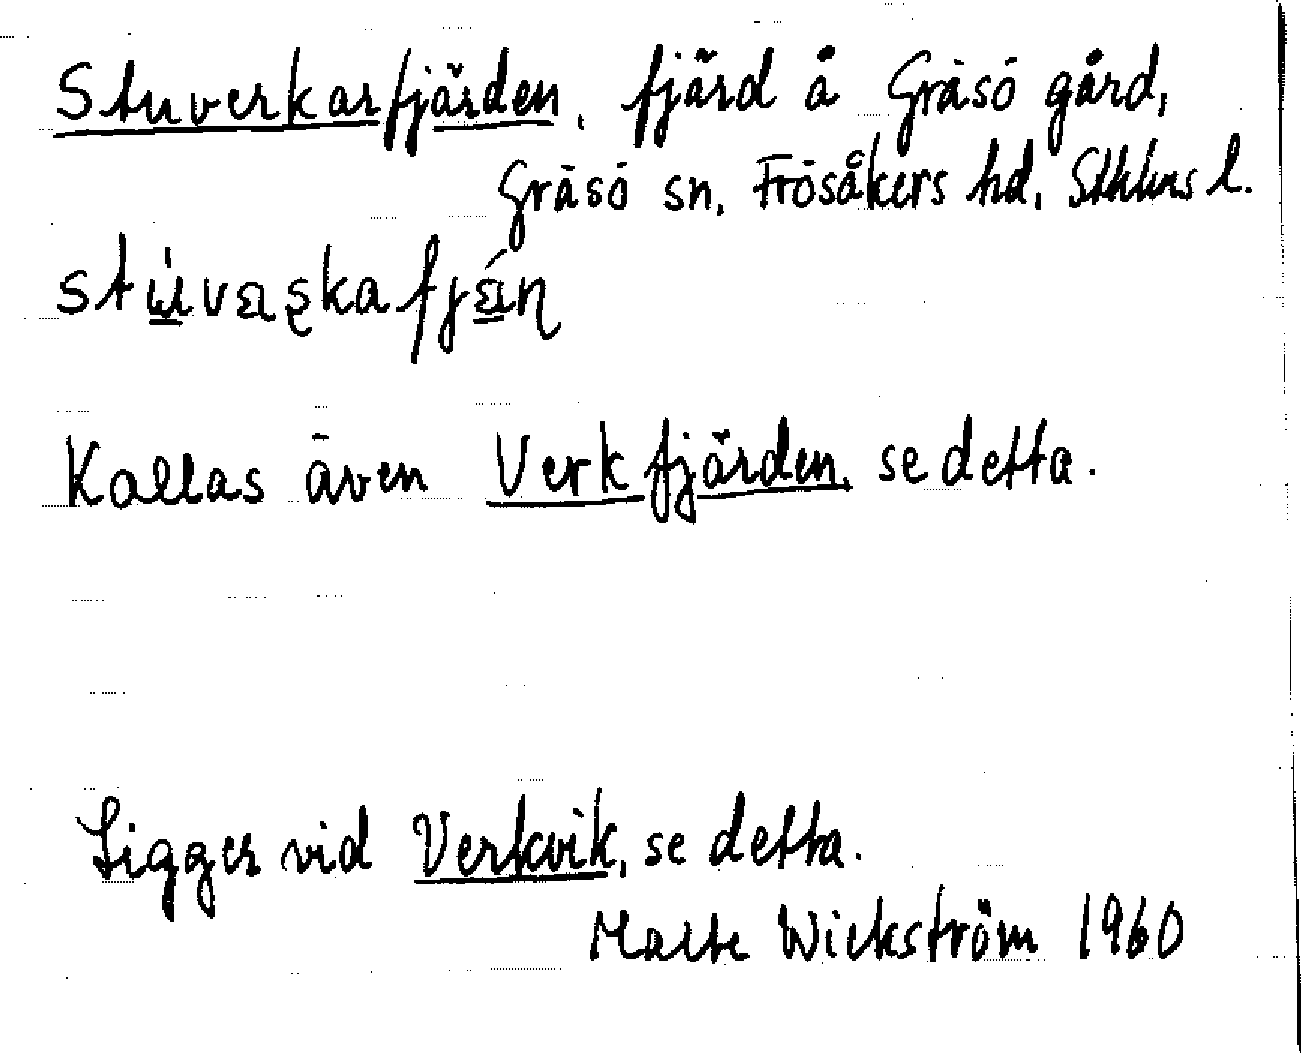 Stuverkarfjärden, fjärd å Gräsö gård,
Gräsö sn, Frösåkers hd, Sthlms l.
Kallas även Verkfjärden, se detta.
Ligger vid Verkvik, se detta.
Malte Wickström 1960